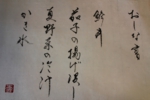 おしな書
鈴井
茄子の揚げ浸し
夏野菜の冷汁
かき氷